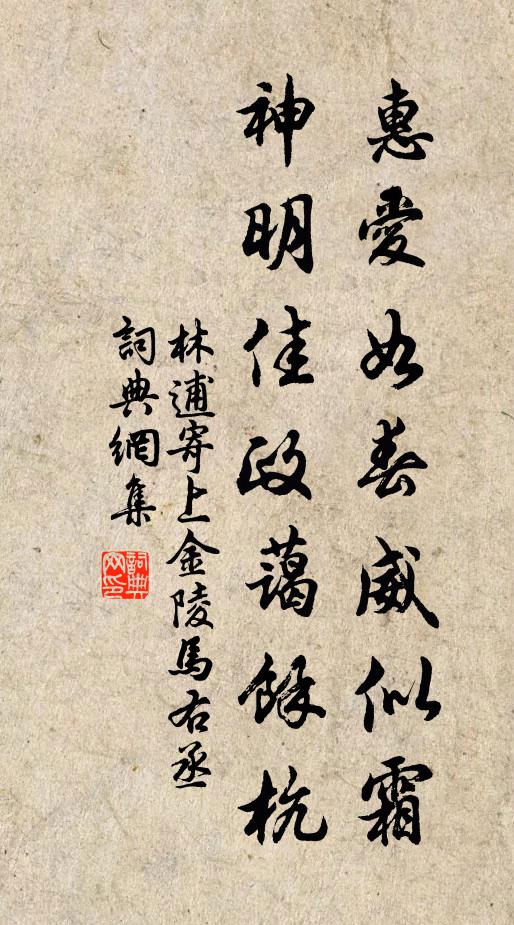 惠愛如春威似霜
神明佳政藹餘杭
林逋寄上金陵馬右丞
詞典網集
詞典网印